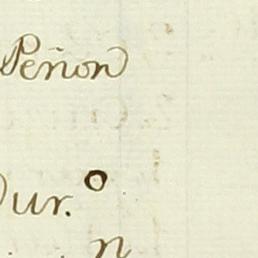 Peñon
Dur.º
n